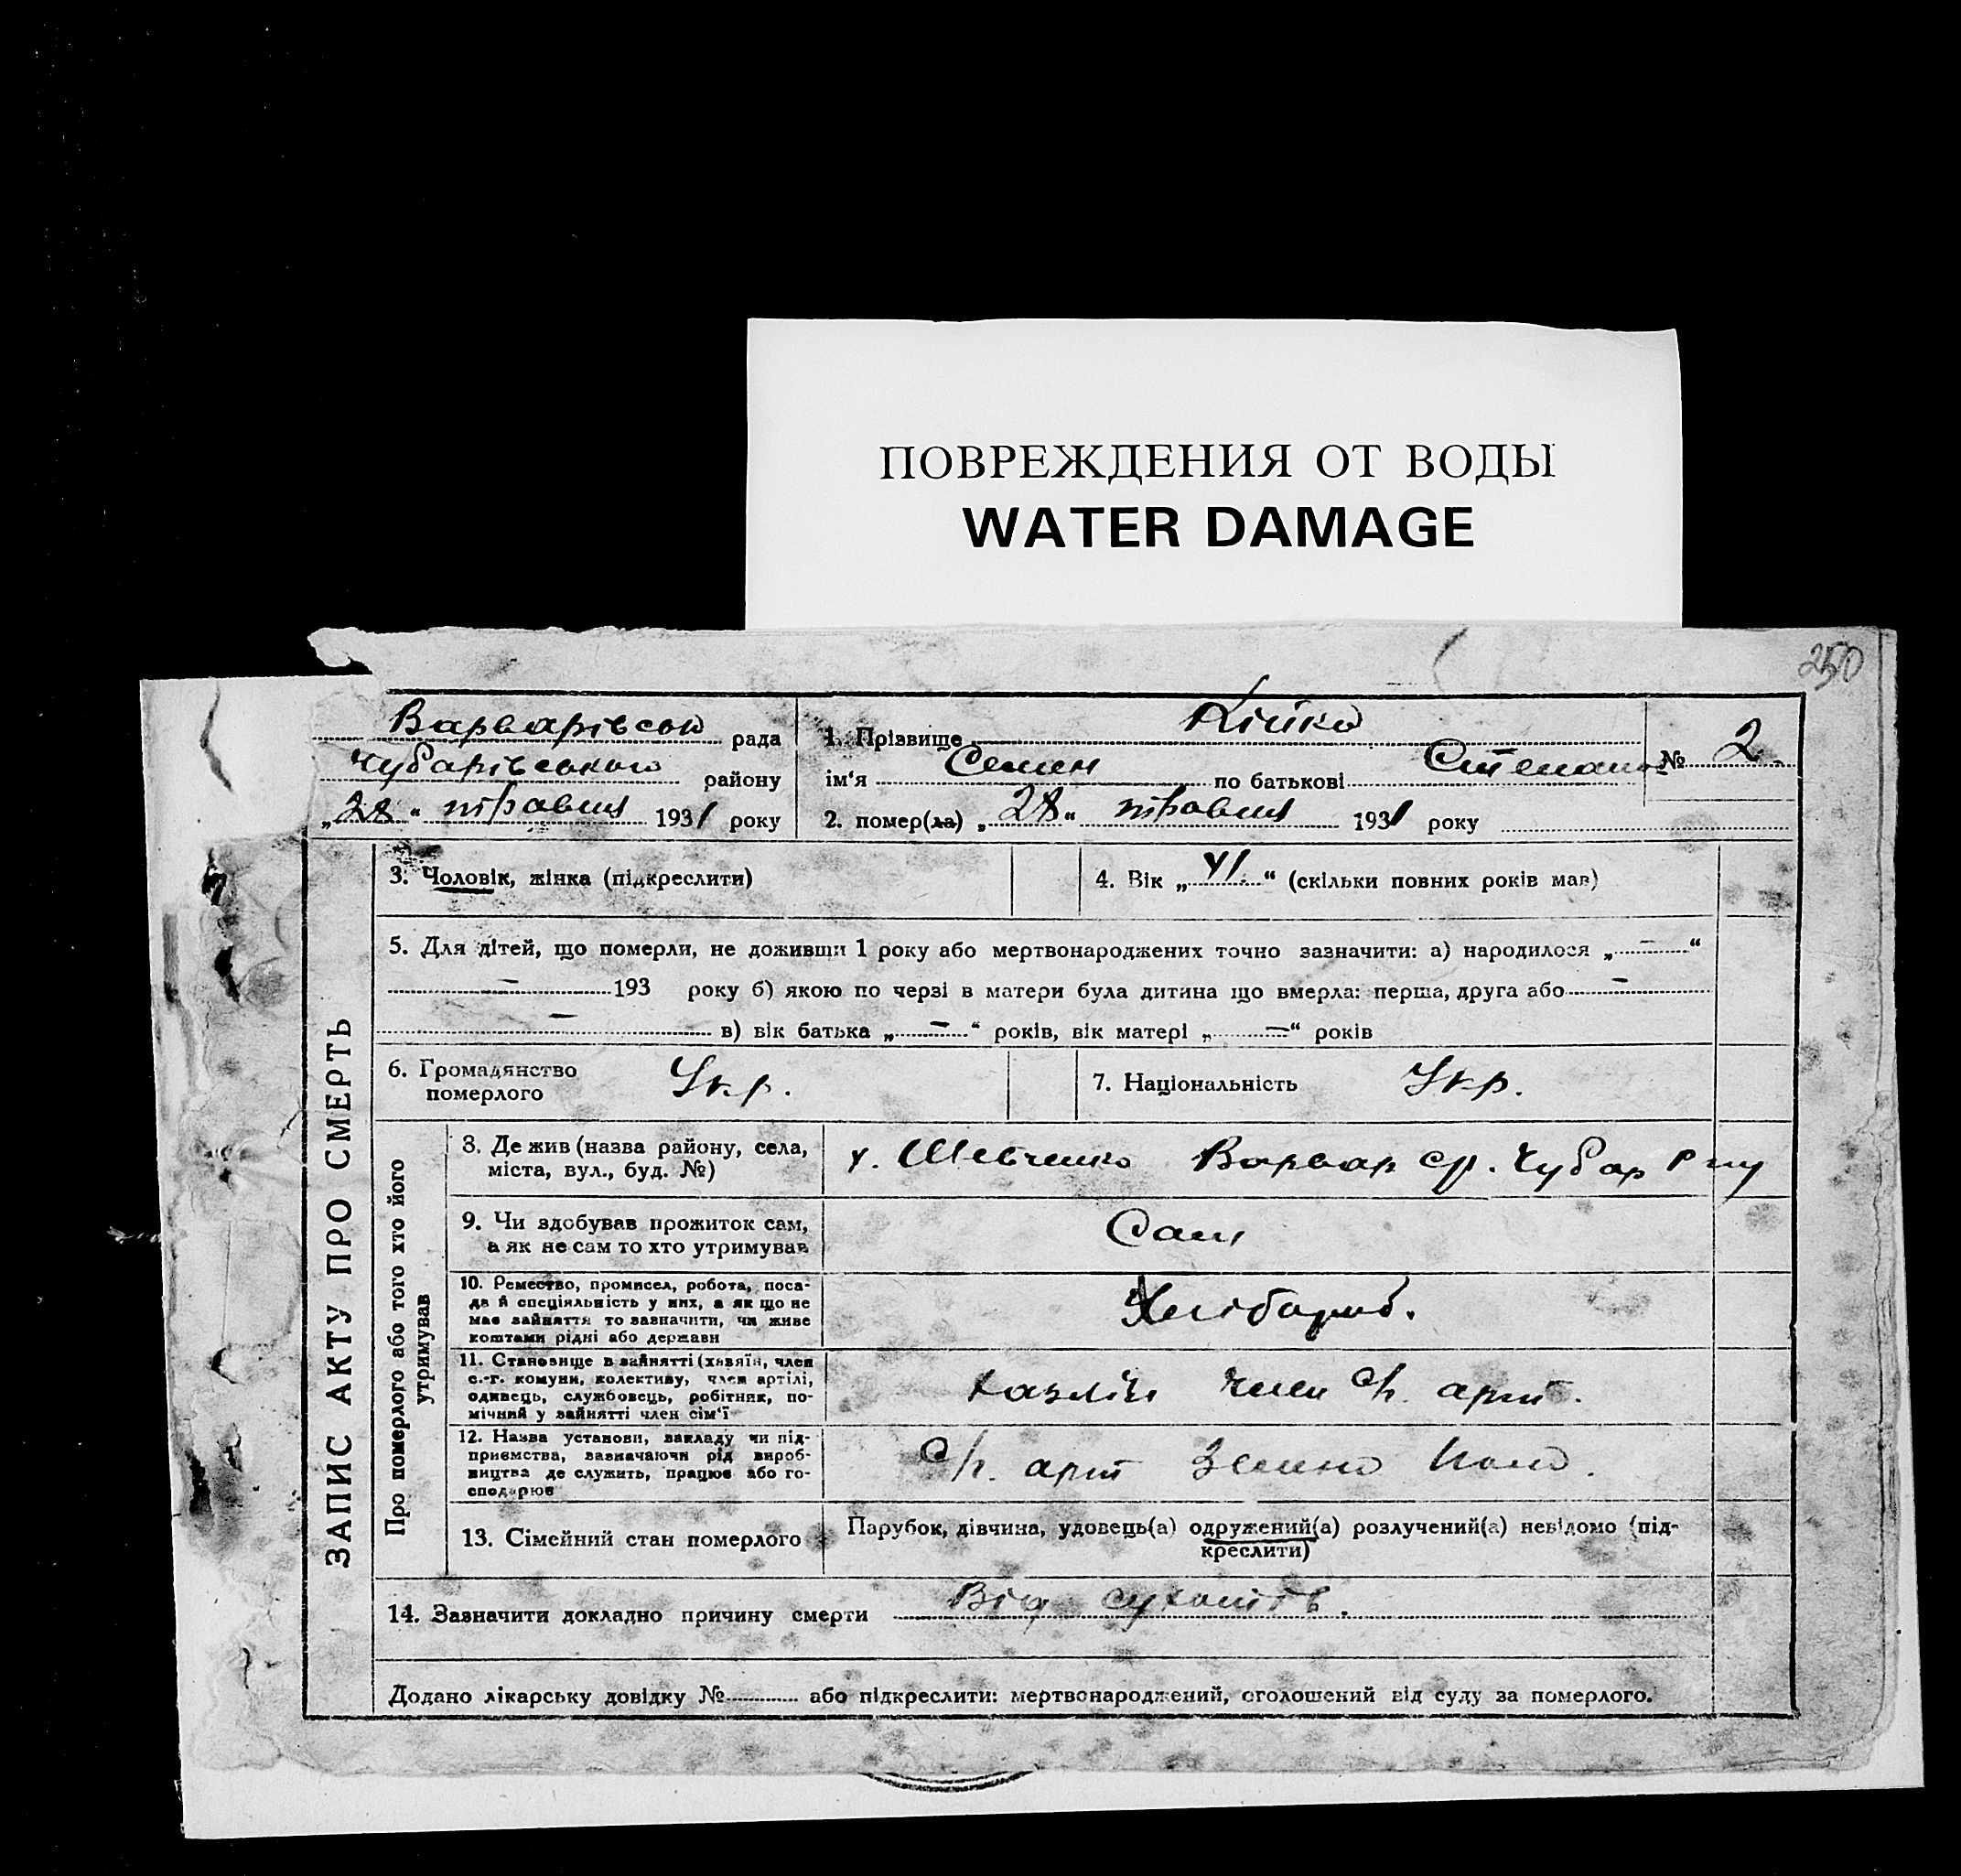 ПОВРЕЖДЕНИЯ ОТ ВОДЫ
WATER DAMAGE
250
Варварівськ рада
Чубарівського району
„28“ травня 1931 року
1. Прізвище Кійко
ім'я Семен по батькові Степано
№ 2.
2. помер(ла) „28“ травня 1931 року
ЗАПИС АКТУ ПРО СМЕРТЬ
3. Чоловік, жінка (підкреслити)
4. Вік „41.“ (скільки повних років мав)
5. Для дітей, що померли, не доживши 1 року або мертвонароджених точно зазначити: а) народилося „–“
– 193 року б) якою по черзі в матери була дитина що вмерла: перша, друга або –
– в) вік батька „–“ років, вік матері „–“ років
6. Громадянство
померлого
Укр.
7. Національність Укр.
Про померлого або того хто його
утримував
8. Де жив (назва району, села,
міста, вул., буд. №)
х. Шевченко Варвар с/р. Чубар р-ну
9. Чи здобував прожиток сам,
а як не сам то хто утримував
Сам
10. Ремество, промисел, робота, поса-
да й спеціяльність у них, а як що не
має зайняття то зазначити, чи живе
коштами рідні або держави
Хлібороб.
11. Становище в зайнятті (хазяїн, член
с.-г. комуни, колективу, член артілі,
одивець, службовець, робітник, по-
мічний у зайнятті член сім'ї
член с/г. арт.
12. Назва установи, закладу чи під-
приємства, зазначаючи рід вироб-
ництва де служить, працює або го-
сподарює
с/г. арт Зелено Поле.
13. Сімейний стан померлого
Парубок, дівчина, удовець(а) одружений(а) розлучений(а) невідомо (під-
креслити)
14. Зазначити докладно причину смерти Від сухотів.
Додано лікарську довідку № або підкреслити: мертвонароджений, оголошений від суду за померлого.